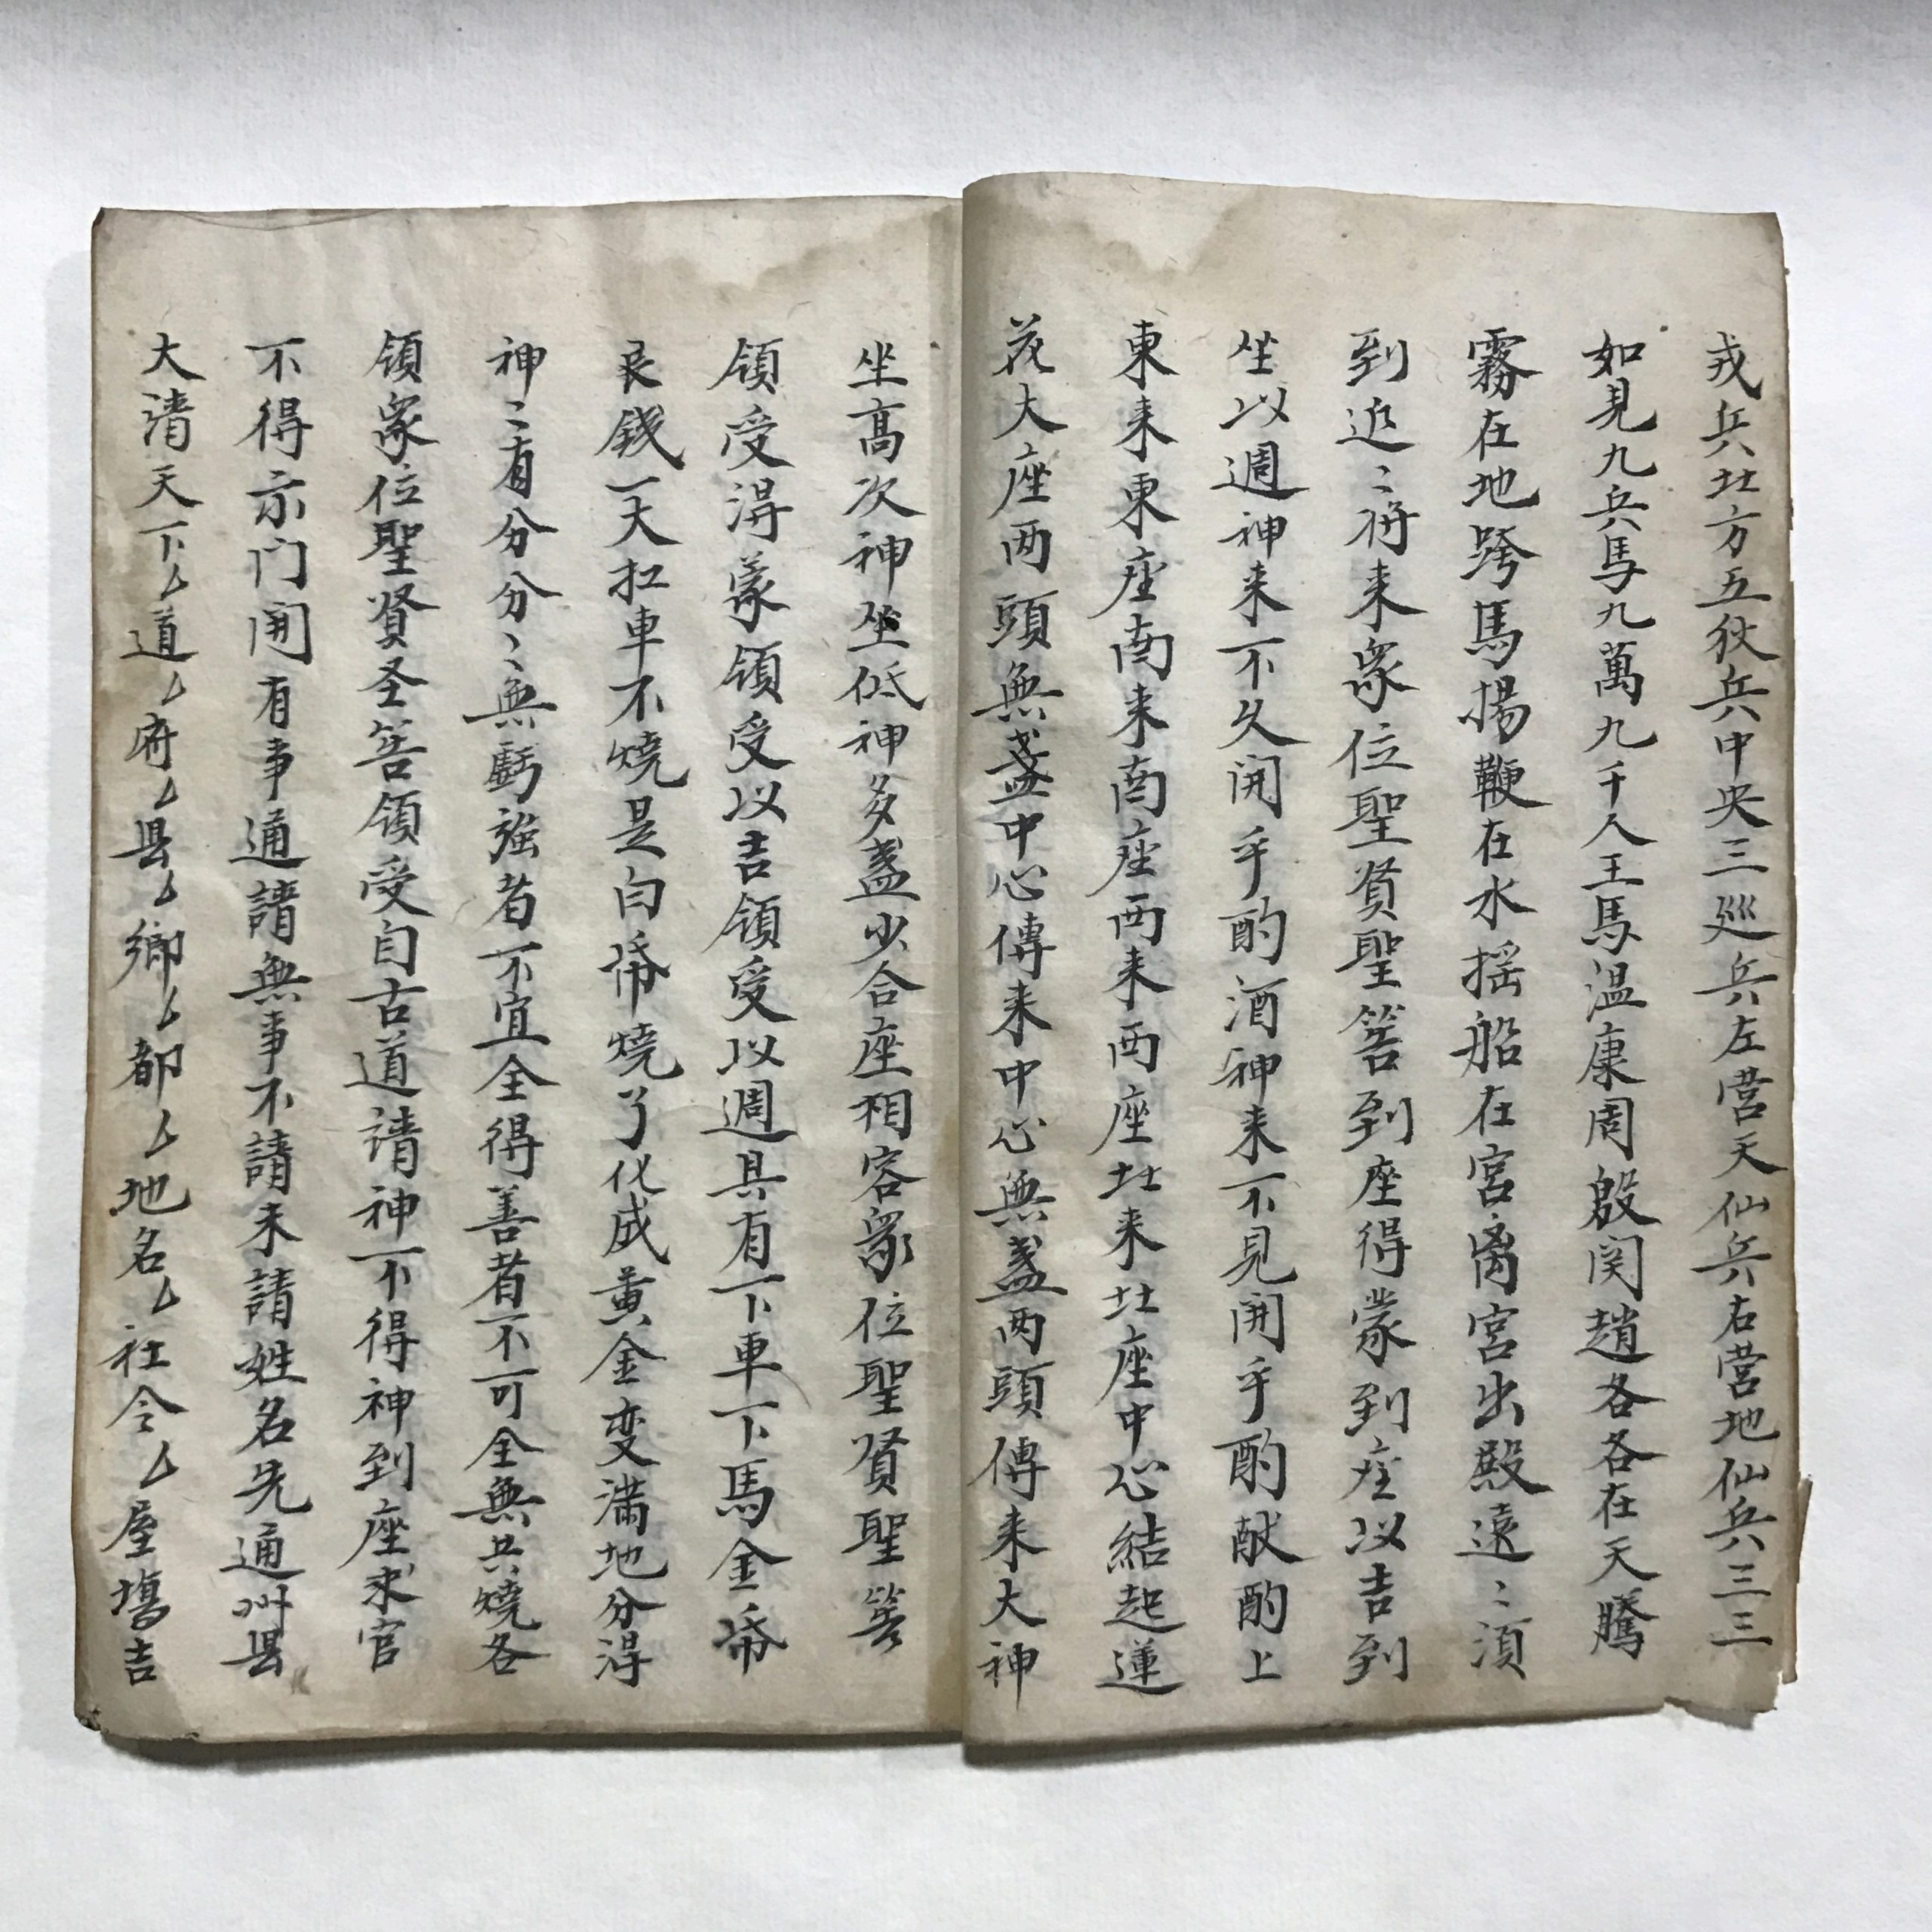 戎兵北方五狄兵中央三巡兵左营天仙兵右营地仙兵三三
如見九兵馬九萬九千人王馬温康周殷関趙各各在天騰
霧在地跨馬揚鞭在水摇船在宮离宮出殿遠〻須
到近〻将来众位聖賢聖筶到座得蒙到座以吉到
坐以週神来不久開手酌酒神来不見開手酌献酌上
東来東座南来南座西来西座北来北座中心結起蓮
花大座两頭無盏中心傳来中心無盏两頭傳来大神
坐高次神坐低神多盏少合座相容众位聖賢聖筶
領受得蒙領受以吉領受以週具有下車下馬金帋
艮錢一大扛車不燒是白帋燒了化成黄金变满地分得
神〻有分分〻無虧強者不宜全得善者不可全無共燒各
領众位聖賢圣筶領受自古道請神不得神到座求官
不得示门開有事通請無事不請未請姓名先通州县
大清天下厶道厶府厶县厶鄉厶都厶地名厶社令厶屋塲吉